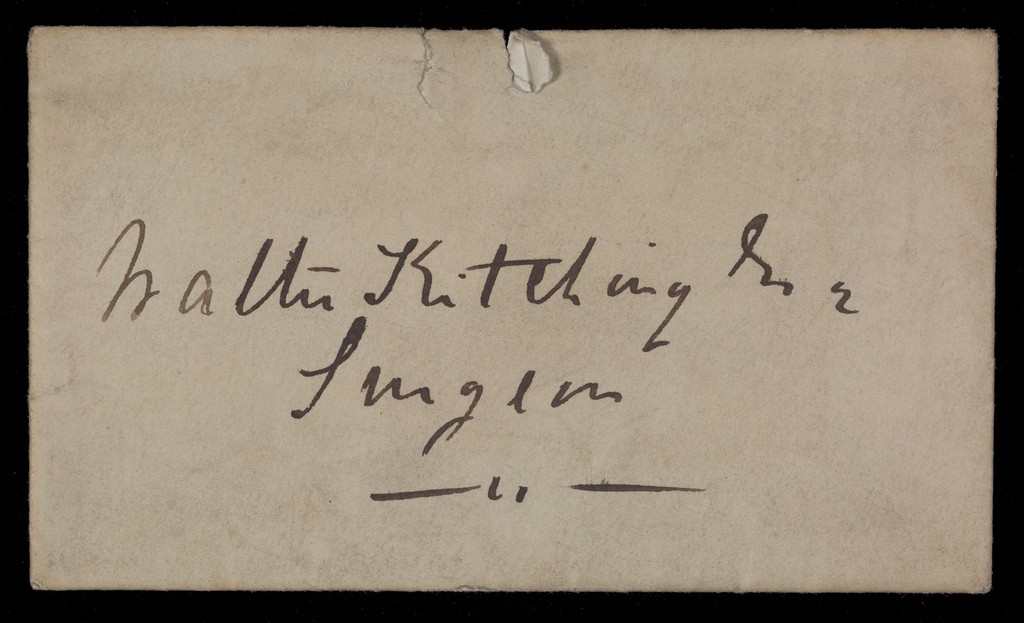 Walter Kitching Esq
Surgeon